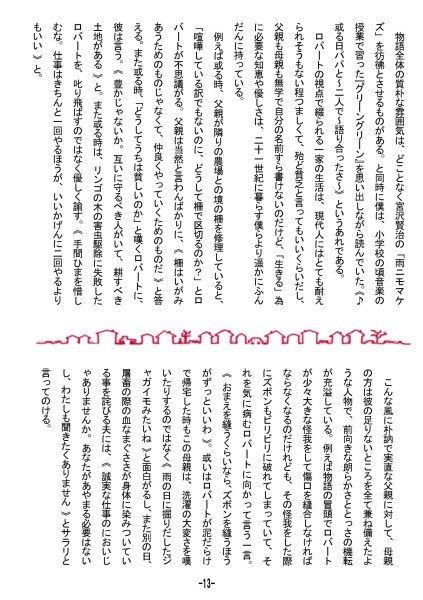 物語全体の質朴な雰囲気は、どことなく宮沢賢治の「雨ニモマケ
ズ」を彷彿とさせるものがある。と同時に僕は、小学校の頃音楽の
授業で習った『グリーングリーン』を思い出しながら読んでいた。《♪
或る日パパと二人で～語り合ったさ～》というあれである。
　ロバートの視点で綴られる一家の生活は、現代人にはとても耐え
られそうもない程つましくて、殆ど貧乏と言ってもいいくらいだし、
父親も母親も無学で自分の名前すら書けないのだけど、「生きる」為
に必要な知恵や優しさは、二十一世紀に暮らす僕らより遥かにふん
だんに持っている。
　例えば或る時、父親が隣りの農場との境の柵を修理していると、
「喧嘩している訳でもないのに、どうして柵で区切るのか？」とロ
バートが不思議がる。父親は当然と言わんばかりに、《　柵はいがみ
あうためのものじゃなくて、仲良くやっていくためのものだ　》と答
える。また或る時、「どうしてうちは貧しいのか」と嘆くロバートに、
彼は言う。《　豊かじゃないか。互いに守るべき人がいて、耕すべき
土地がある　》と。また或る時は、リンゴの木の害虫駆除に失敗した
ロバートを、叱り飛ばすのではなく優しく諭す。《　手間ひまを惜し
むな。仕事はきちんと一回やるほうが、いいかげんに二回やるより
もいい　》と。
　こんな風に朴訥で実直な父親に対して、母親
の方は彼の足りないところを全て兼ね備えたよ
うな人物で、前向きな朗らかさととっさの機転
が充溢している。例えば物語の冒頭でロバート
が少々大きな怪我をして傷口を縫合しなければ
ならなくなるのだけれども、その怪我をした際
にズボンもビリビリに破れてしまっていて、そ
れを気に病むロバートに向かって言う一言。
《　おまえを縫うくらいなら、ズボンを縫うほう
がずっといいわ　》。或いはロバートが泥だらけ
で帰宅した時もこの母親は、洗濯の大変さを嘆
いたりするのではなく《　雨の日に掘りだしたジ
ャガイモみたいね　》と面白がるし、また別の日、
屠畜の際の血なまぐささが身体に染みついてい
る事を詫びる夫には、《　誠実な仕事のにおいじ
ゃありませんか。あなたがあやまる必要はない
し、わたしも聞きたくありません　》とサラリと
言ってのける。
-13-